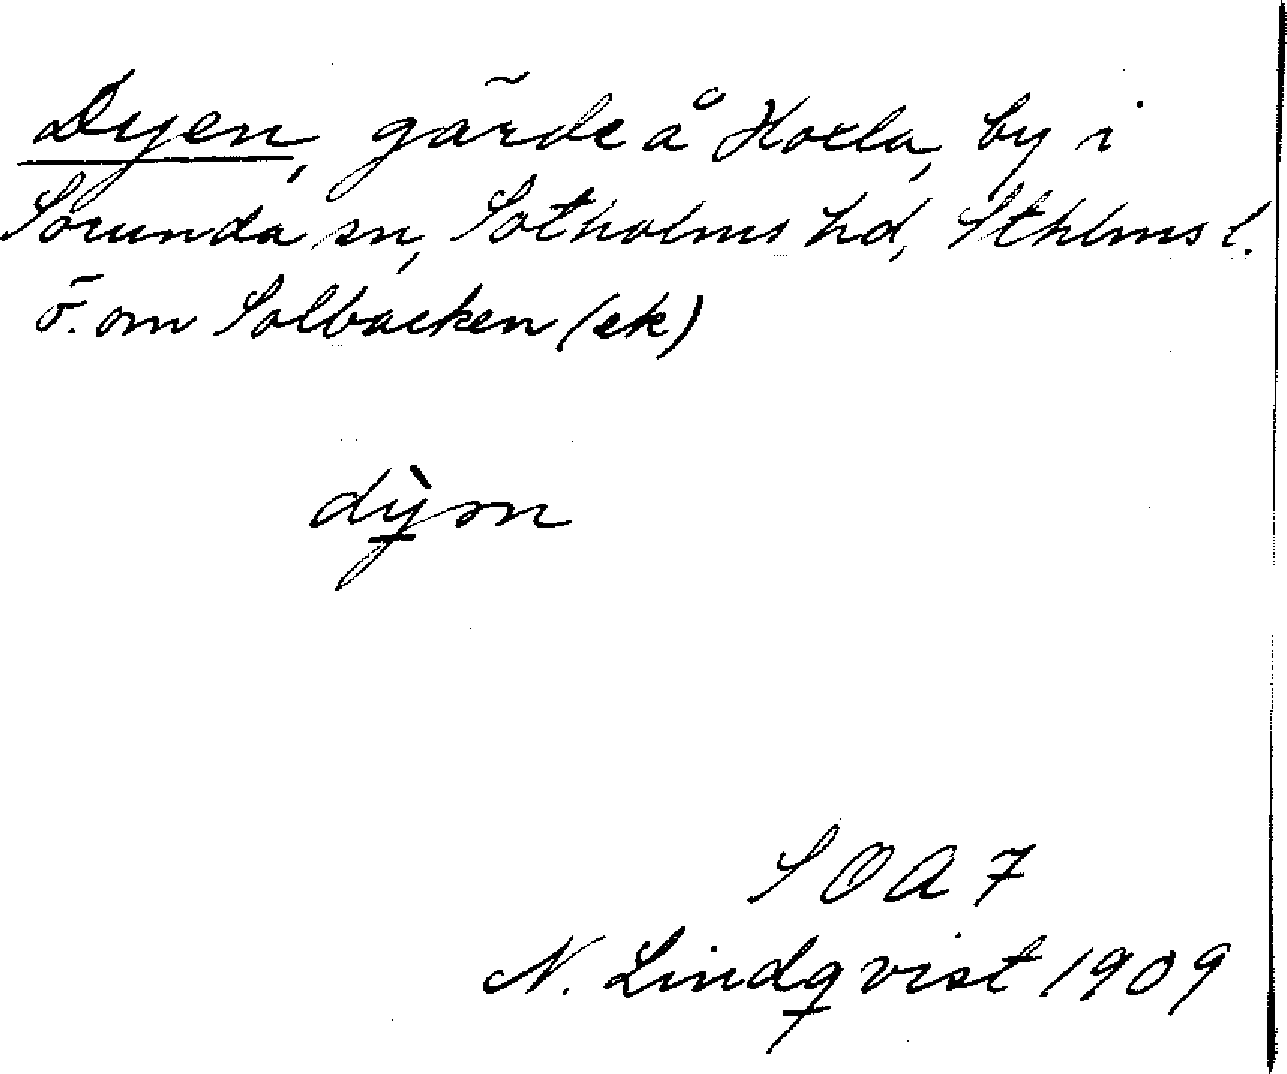 Dyen, gärde å Hoxla, by i
Sorunda sn, Sotholms hd, Sthlms l.
ö. om Solbacken (ek)
dỳən
SOA 7
N. Lindqvist 1909